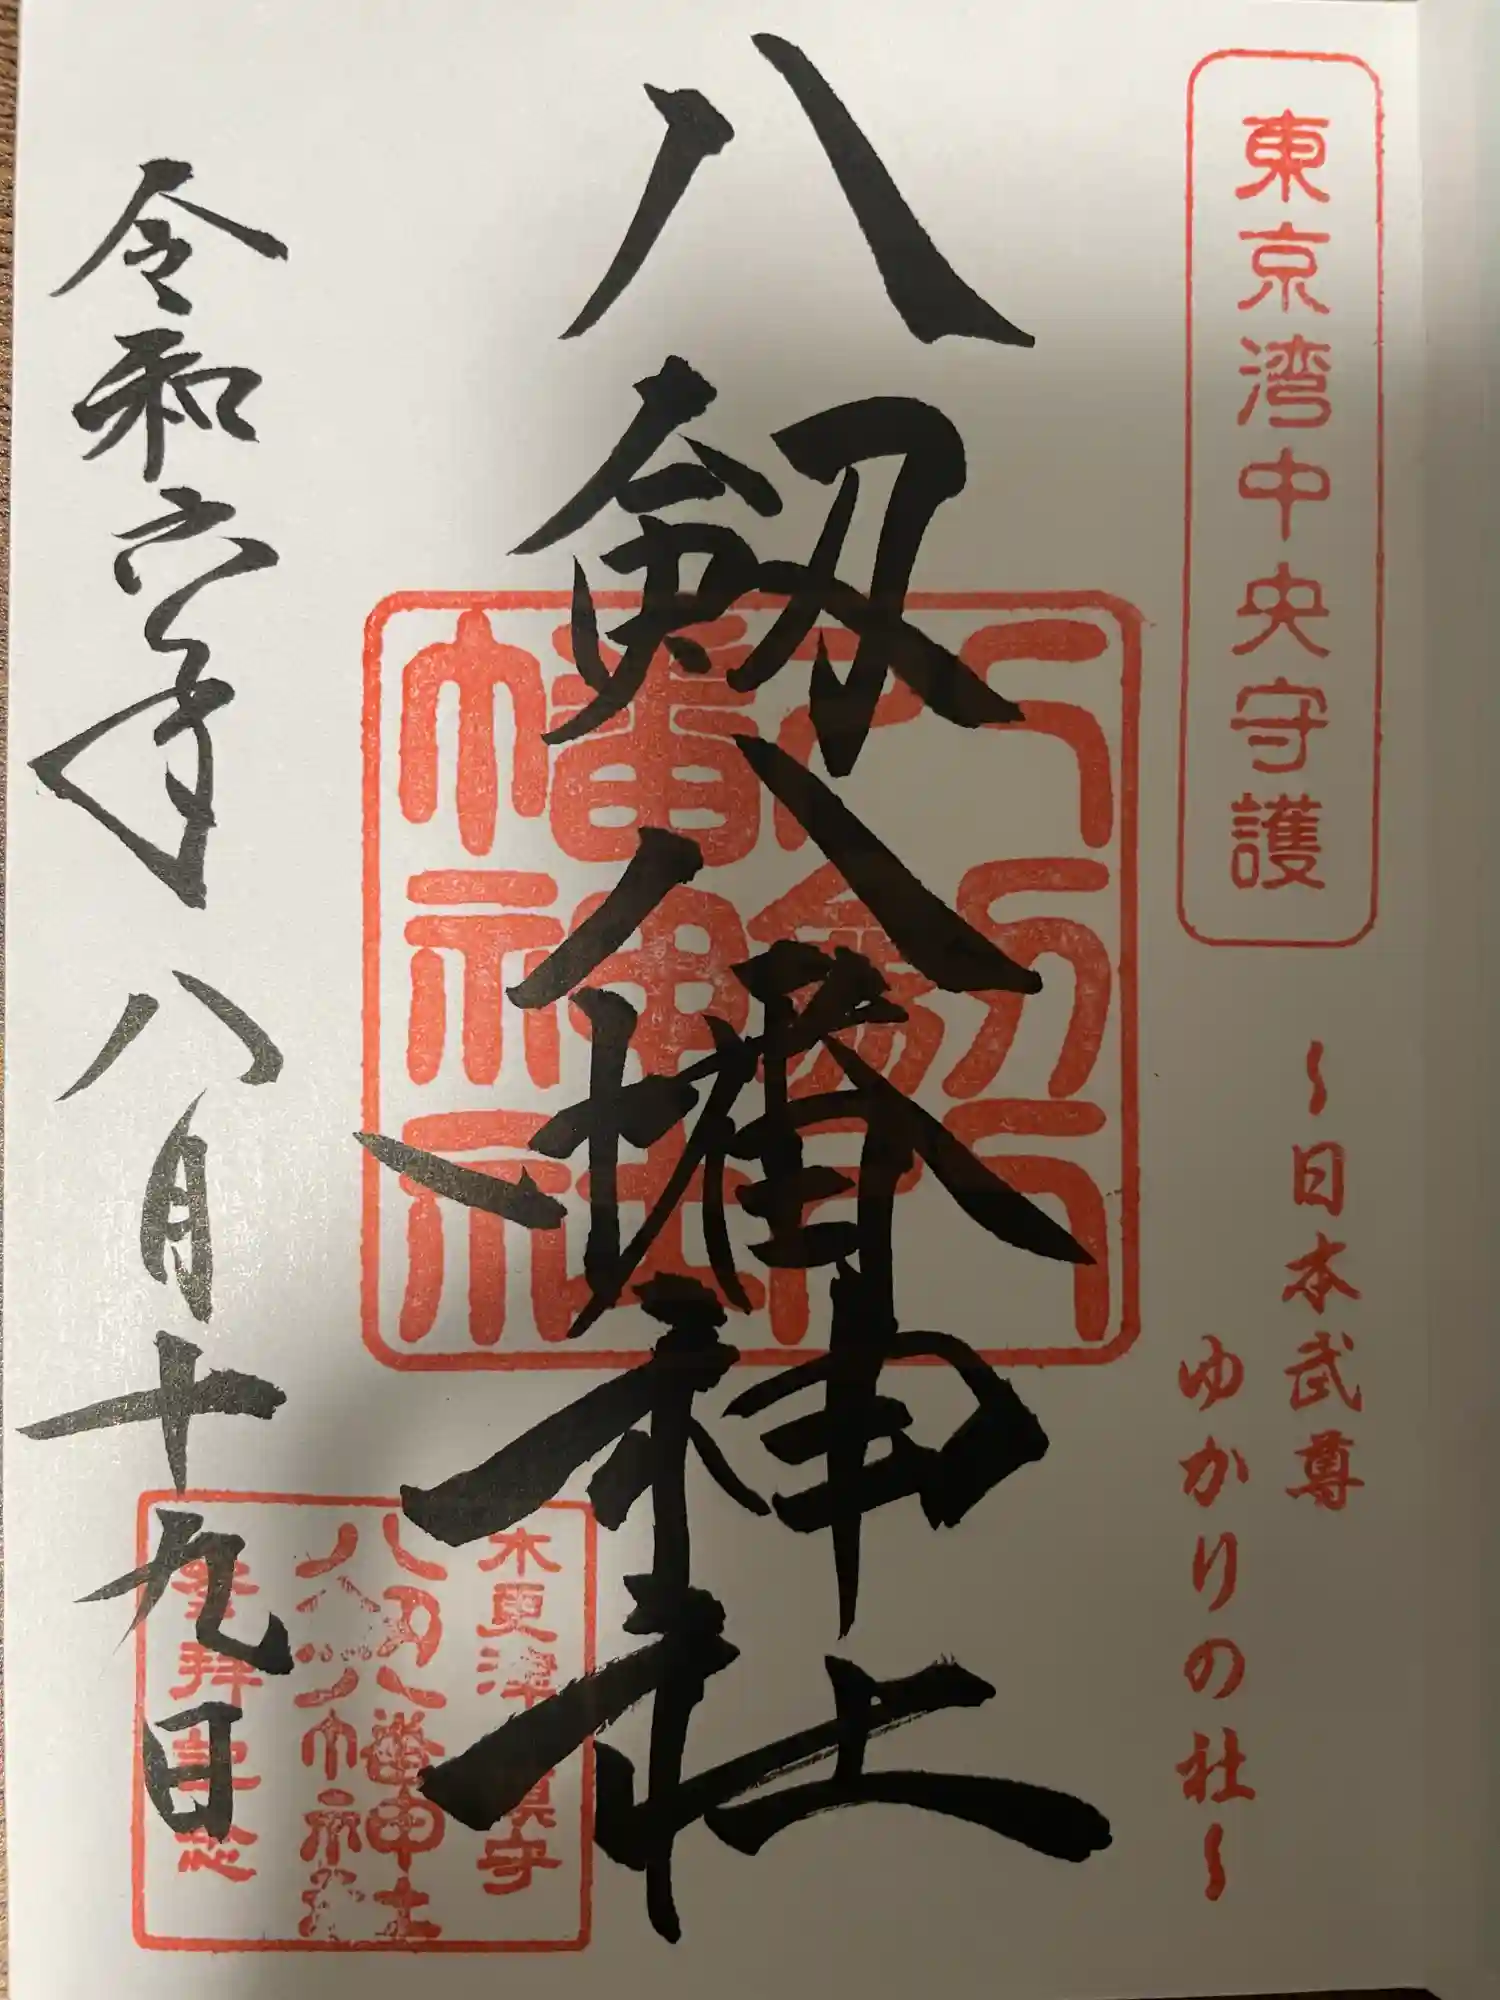 東京湾中央守護
〜日本武尊
ゆかりの社〜
八剱八幡神社
八剱八幡神社
木更津
鎮守
八剱八幡神社
参拝記念
令和六年八月十九日